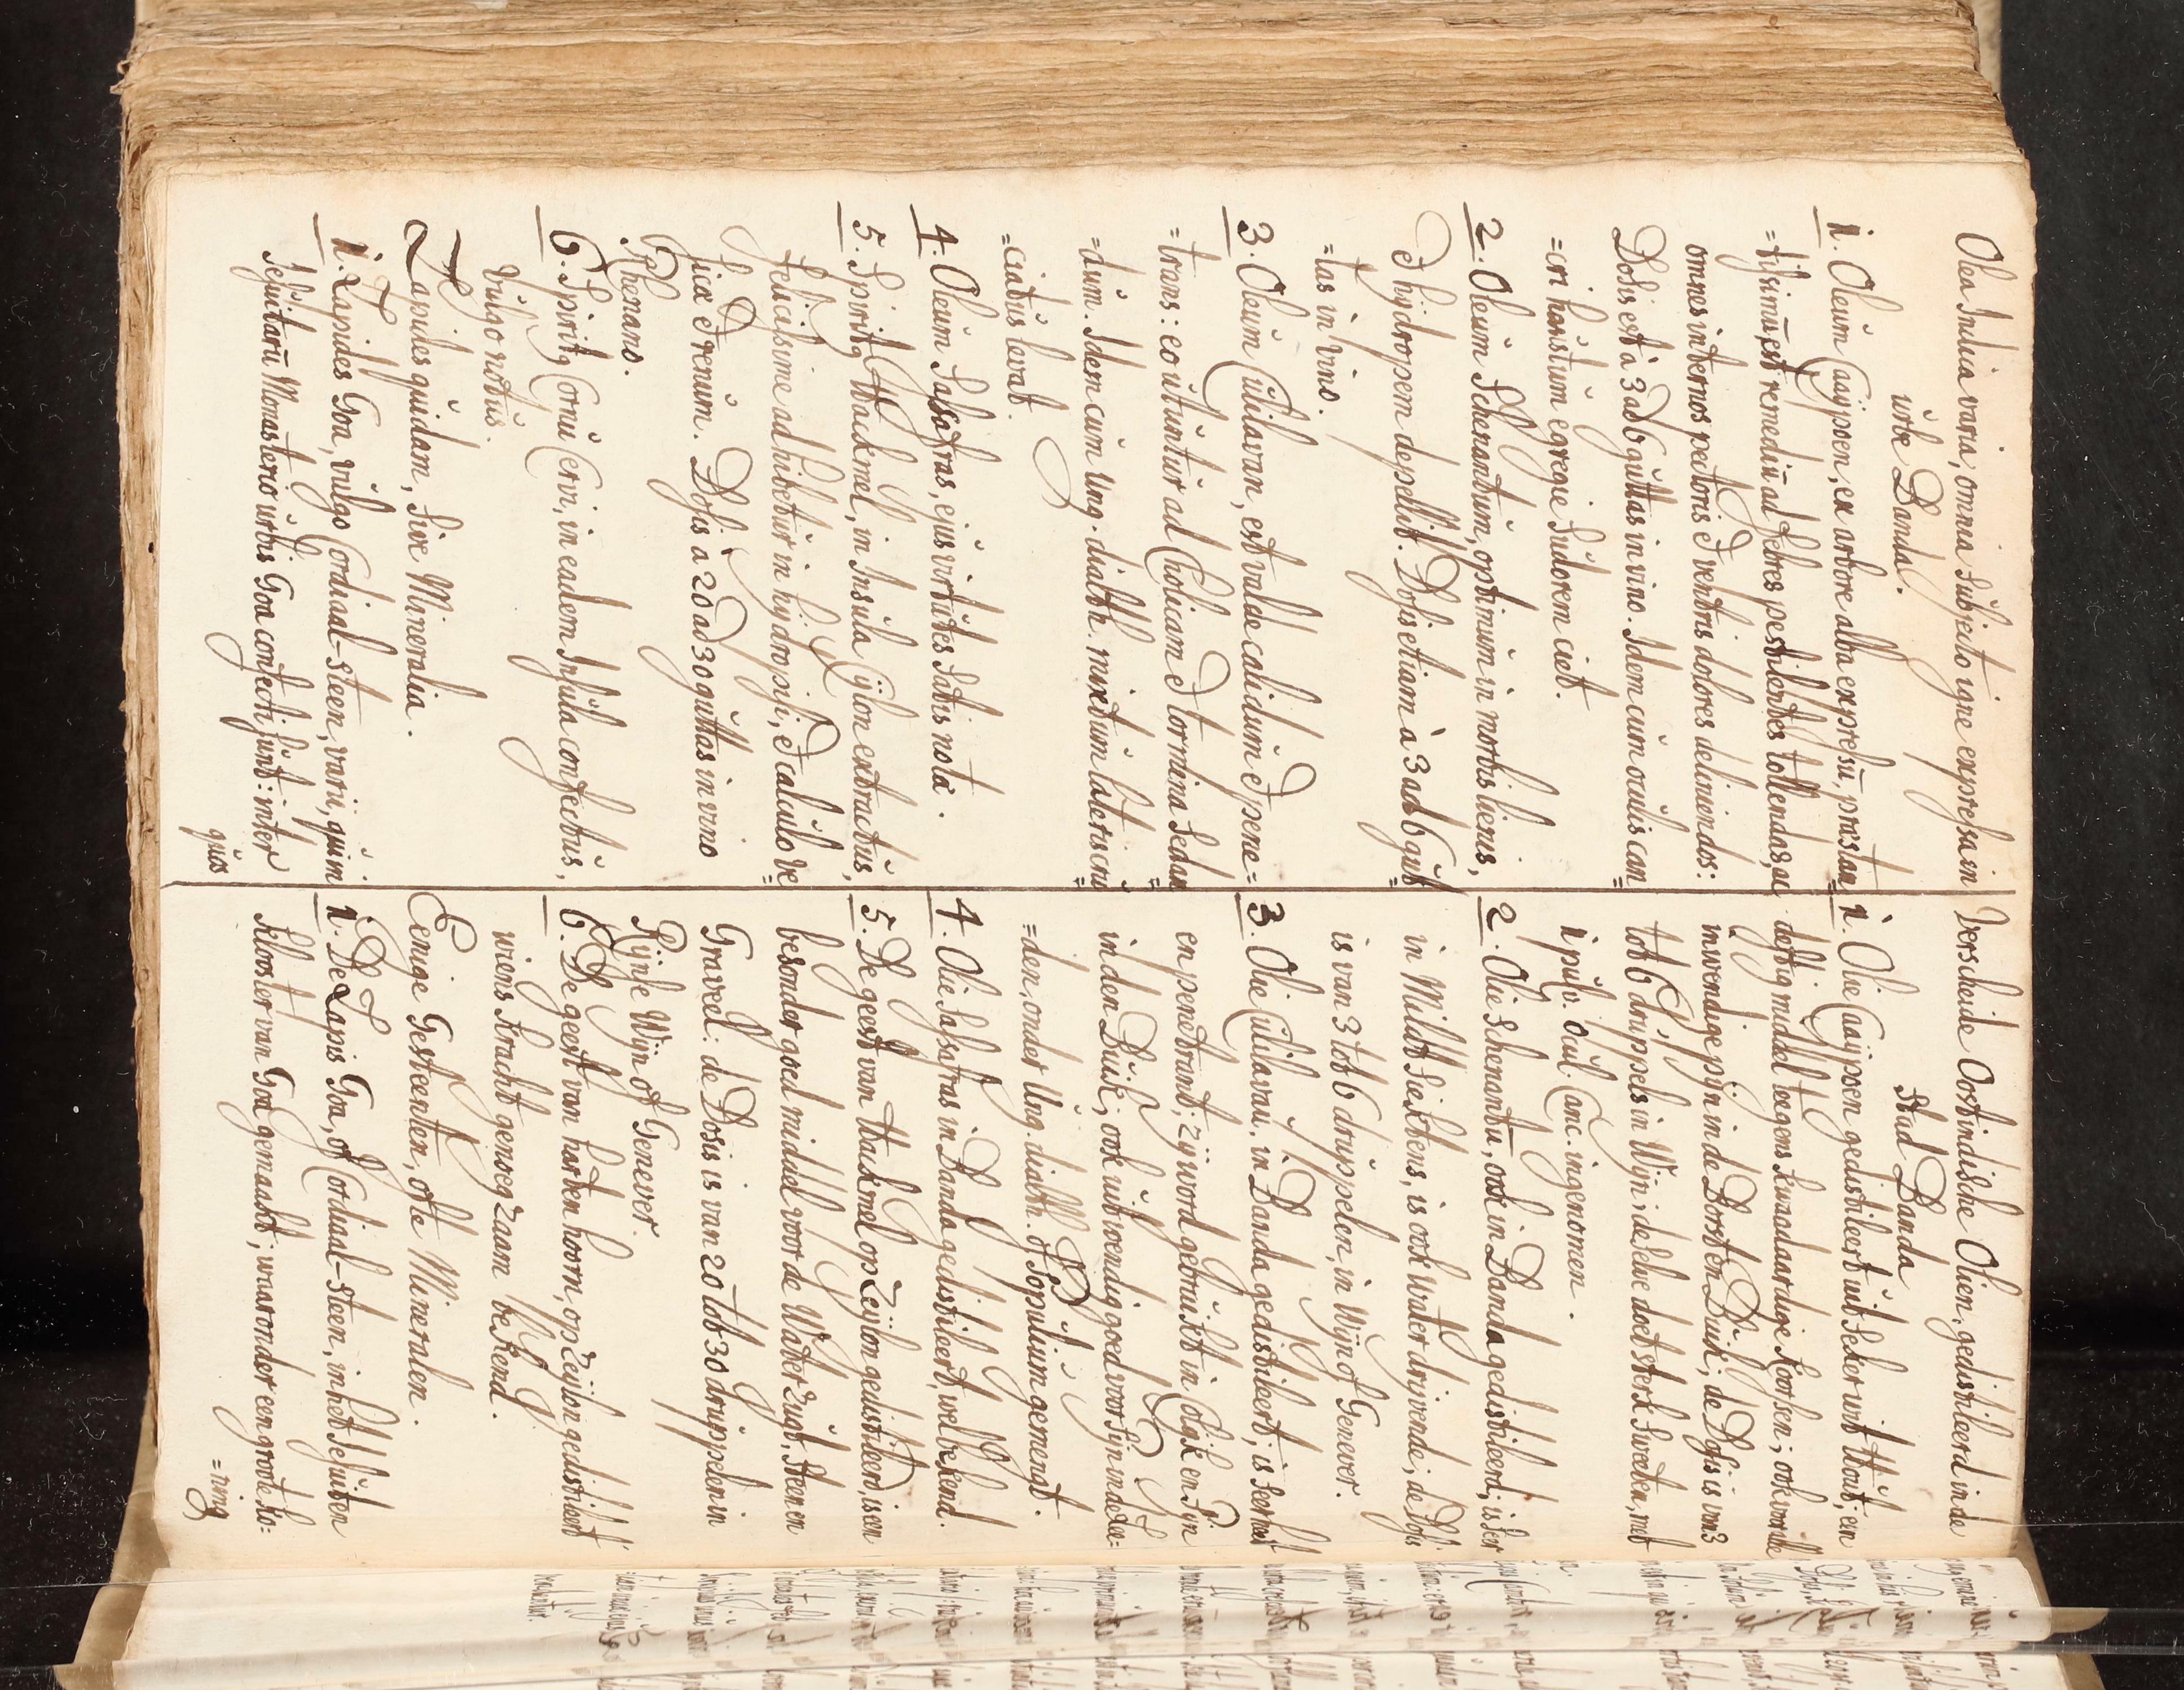 Olea Indica varia, omnia subjecto igne expressa in
urbe Banda.
1. Oleum Caijpoen, ex arbore alba expressū, præstan=
=tissimū est remediū ad febres pestilentes tollendas, ac
omnes internos pectoris & ventris dolores deliniendos:
Dosis est à 3 ad 6 guttas in vino. Idem cum oculis can=
=cri haustum egregie sudorem ciet.
2. Oleum Schenantum, optimum in morbis lienis,
& hijdropem depellit. Dosis etiam à 3 ad 6 gut=
=tas in vino.
3. Oleum Culilavan, est valde calidum & pene=
=trans: eo utuntur ad Cholicam & tormina sedan=
=dum. Idem cum Ung. dialth. mixtum lateris cru=
=ciatus levat.
4. Oleum Sasafras, ejus virtutes satis notæ.
5. Spiritq Thackmel, in Insula Cijlon extractus,
felicissime adhibetur in hijdropsi, & calculo ve=
sicæ & renum. Dosis à 20 ad 30 guttas in vino
Rhenano.
6. Spiritq Cornu Cervi, in eadem Insula confectus,
vulgo notus.
Lapides quidam, sive Mineralia.
1. Lapides Goa, vulgo Cordiaal-steen, varii, qui in
Jesuitarū Monasterio urbis Goa confecti sunt: inter
quos
Verscheide Oostindische Olien, gedistileerd in de
stad Banda
1. Olie Caijpoen gedistileert uit seker wit hout, een
deftig middel teegens kwaadaardige koorsen; ook voor alle
inwendige pijn in de Borst en Buik; de Dosis is van 3
tot 6 druppels in Wijn; deselve doet sterk sweeten, met
1 pulv. Ocul. Canc. ingenomen.
2. Olie Schenantū, ook in Banda gedistileerd; is seer
in Milt siektens, is ook water drijvende; de Dosis
is van 3 tot 6 druppelen, in Wijn of Genever.
3. Olie Culilavan, in Banda gedistileert; is seer heet
en penetrant; zij word gebruikt in Colijk en Pijn
in den Buik; ook uitwendig goed voor Pijn in de Le=
=den, onder Ung. dialth. of Populeum gemengt.
4. Olie Sasafras in Banda gedistileert, wel bekend.
5. De geest van Thackmel op Zeijlon gedistileerd, is een
besonder goed middel voor de Water zugt, steen en
Graveel: de Dosis is van 20 tot 30 druppelen in
Rijnse Wijn of Genever.
6. De geest van harten hoorn, op Zeijlon gedistileert
wiens kracht genoegzaam bekend.
Eenige Gesteenten, ofte Mineralen.
1. De Lapis Goa, of Cordiaal-steen, in het Jesuiten
kloostor van Goa gemaakt; waar onder een groote ko=
=ning